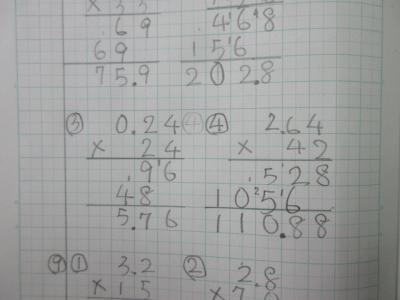 .69 .468
69 156
75.9 202.8
③ 0.24 ④ 2.64
× 24 × 42
.96 .528
48 1056
5.76 110.88
⑨ ① 3.2 ② 2.8
×15